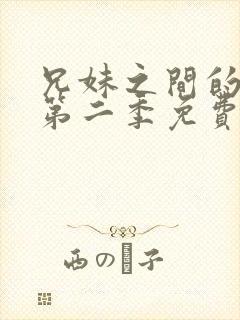 兄妹之間的
第二季免費
西の子